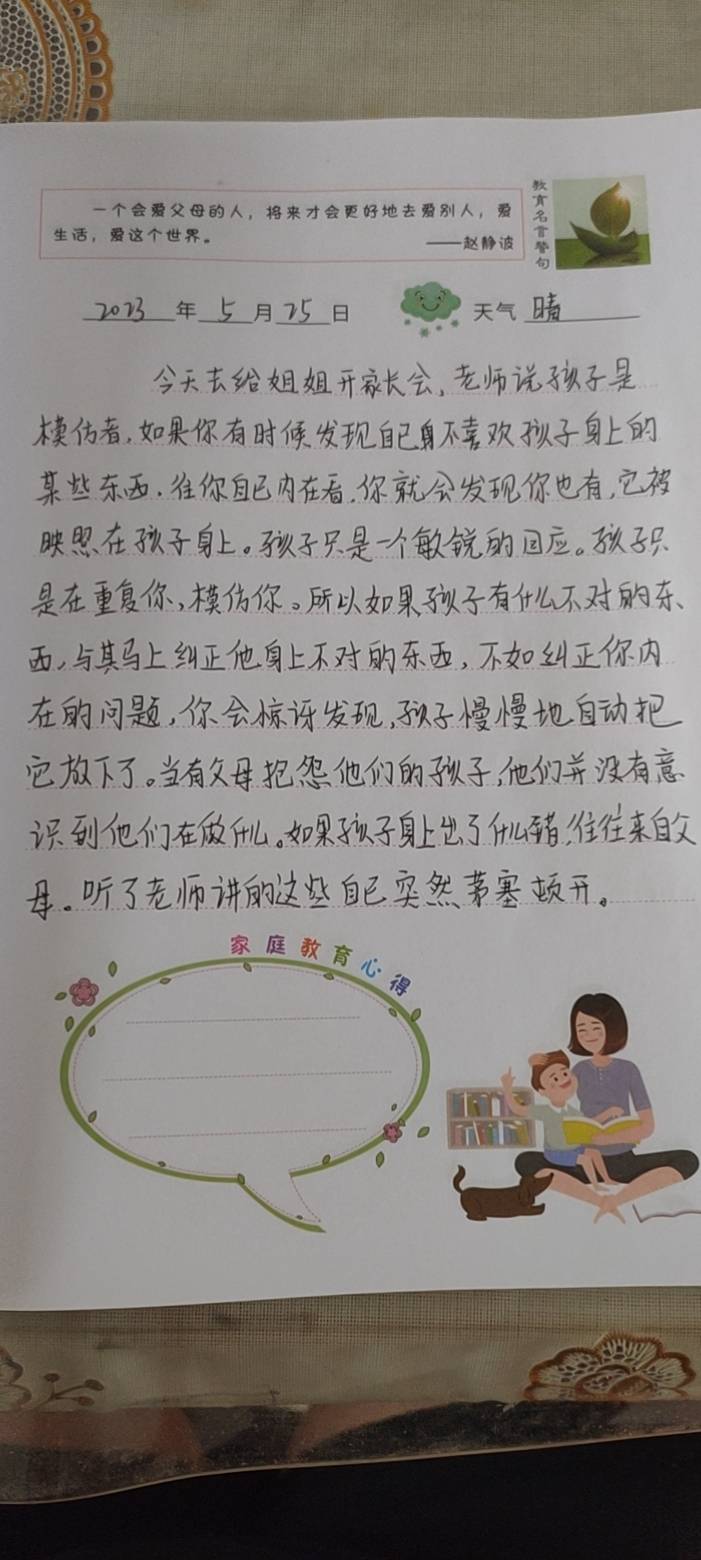 一个会爱父母的人，将来才会更好地去爱别人，爱
生活，爱这个世界。
——赵静波
教育名言警句
2023年5月25日 天气 晴
今天去给姐姐开家长会，老师说孩子是
模仿者，如果你有时候发现自己身不喜欢孩子身上的
某些东西，往你自己内在看，你就会发现你也有，它被
映照在孩子身上。孩子只是一个敏锐的回应。孩子只
是在重复你，模仿你。所以如果孩子有什么不对的东
西，与其马上纠正他身上不对的东西，不如纠正你内
在的问题，你会惊讶发现，孩子慢慢地自动把
它放下了。当有父母抱怨他们的孩子，他们并没有意
识到他们在做什么。如果孩子身上出了什么错，往往来自父
母。听了老师讲的这些自己突然茅塞顿开。
家庭教育心得